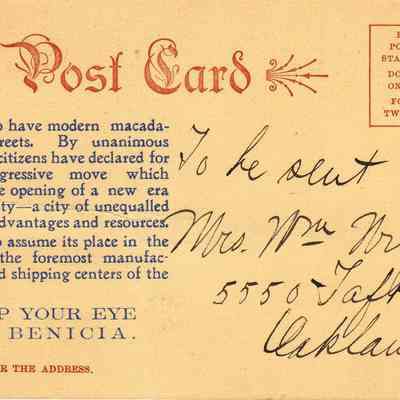 Post Card
o have modern macada-
reets. By unanimous
citizens have declared for
gressive move which
e opening of a new era
ty—a city of unequalled
dvantages and resources.
o assume its place in the
the foremost manufac-
d shipping centers of the
P YOUR EYE
BENICIA.
R THE ADDRESS.
P
PO
STA
DO
ON
FO
TW
To be sent
Mrs. Wm Wr
5550 Taft
Oaklan